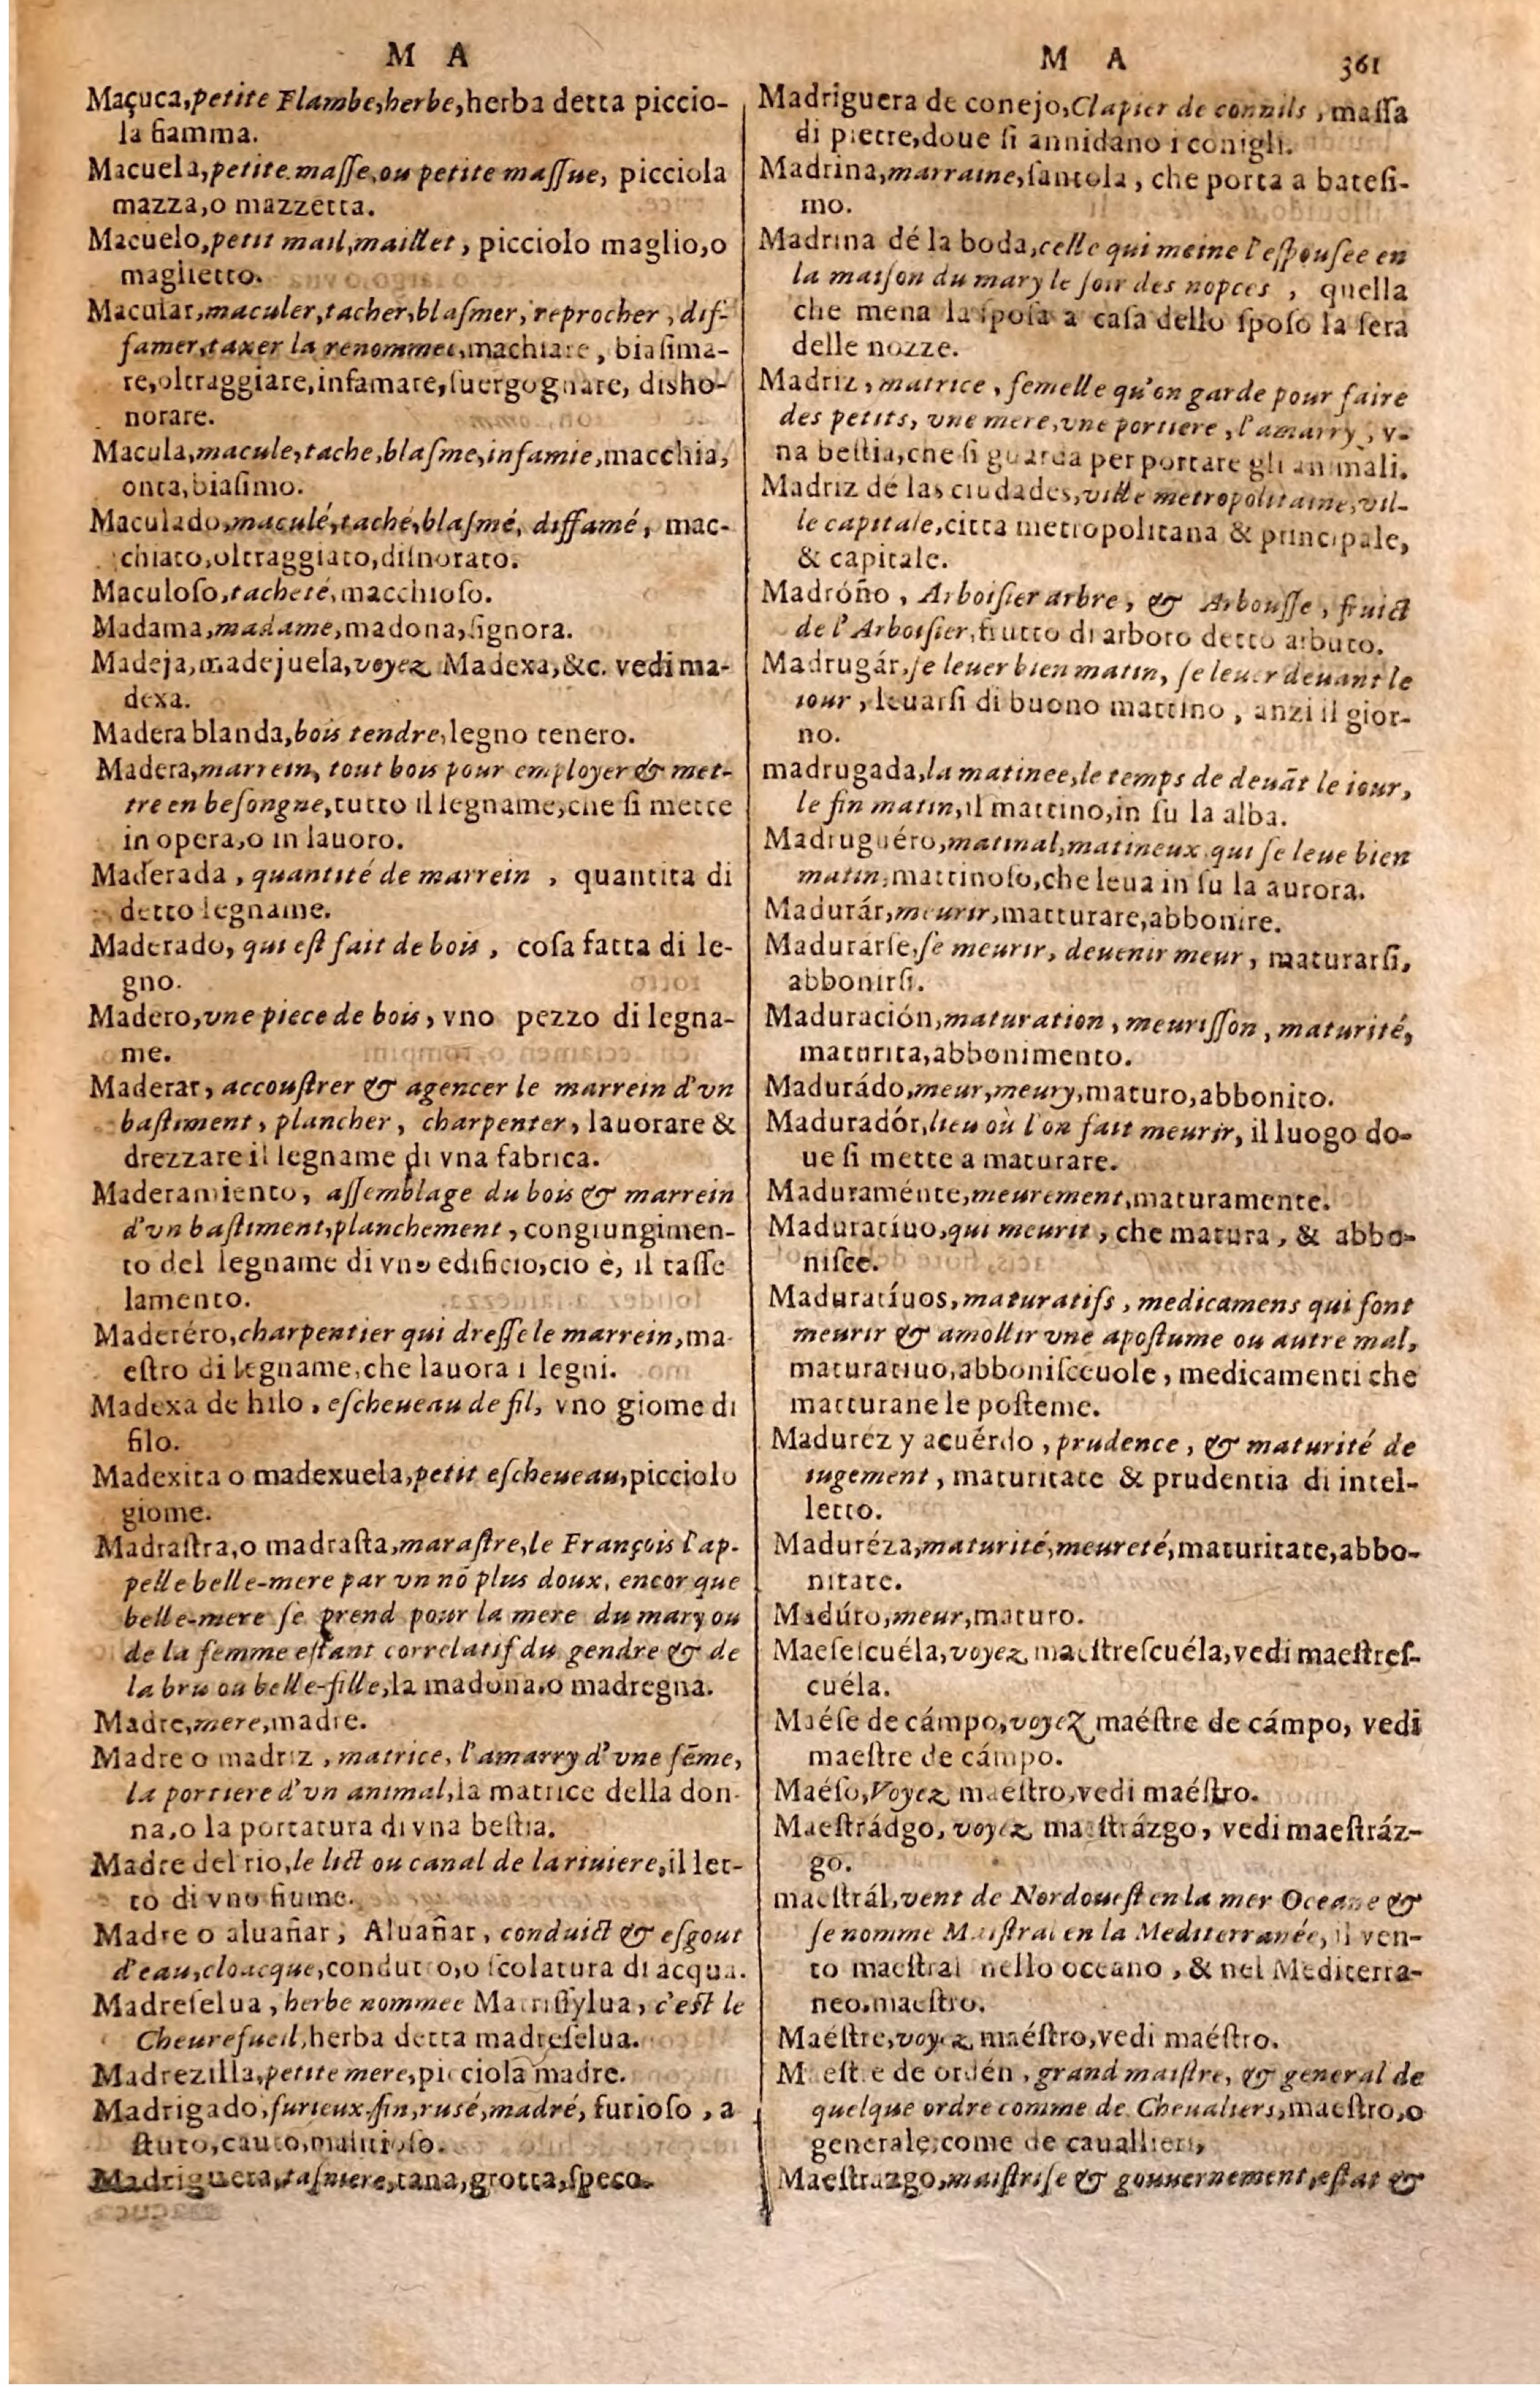 M A
Maçuca, petite Flambe, herbe, herba detta piccio-
la fiamma.
Macuela, petite maſſe, ou petite maſſue, picciola
mazza, o mazzetta.
Macuelo, petit mail, maillet, picciolo maglio, o
maglietto.
Macular, maculer, tacher, blaſmer, reprocher, dif-
famer, taxer la renommee, machiare, biaſima-
re, oltraggiare, infamare, ſuergognare, disho-
norare.
Macula, macule, tache, blaſme, infamie, macchia,
onta, biaſimo.
Maculado, maculé, taché, blaſmé, diffamé, mac-
chiato, oltraggiato, diſnorato.
Maculoſo, tacheté, macchioſo.
Madama, madame, madona, ſignora.
Madeja, madejuela, voyez Madexa, &c. vedi ma-
dexa.
Madera blanda, bois tendre, legno tenero.
Madera, marrein, tout bois pour employer & met-
tre en beſongne, tutto il legname, che ſi mette
in opera, o in lauoro.
Maderada, quantité de marrein, quantita di
detto legname.
Maderado, qui eſt fait de bois, coſa fatta di le-
gno.
Madero, vne piece de bois, vno pezzo di legna-
me.
Maderar, accouſtrer & agencer le marrein d'vn
baſtiment, plancher, charpenter, lauorare &
drezzare il legname di vna fabrica.
Maderamiento, aſſemblage du bois & marrein
d'vn baſtiment, planchement, congiungimen-
to del legname di vno edificio, cio è, il taſſe
lamento.
Maderéro, charpentier qui dreſſe le marrein, ma-
eſtro di legname, che lauora i legni.
Madexa de hilo, eſcheueau de fil, vno giome di
filo.
Madexita o madexuela, petit eſcheueau, picciolo
giome.
Madraſtra, o madraſta, maraſtre, le François l'ap-
pelle belle-mere par vn nõ plus doux, encor que
belle-mere ſe prend pour la mere du mary ou
de la femme eſtant correlatif du gendre & de
la bru ou belle-fille, la madona, o madregna.
Madre, mere, madre.
Madre o madriz, matrice, l'amarry d'vne fẽme,
la portiere d'vn animal, la matrice della don-
na, o la portatura di vna beſtia.
Madre del rio, le lict ou canal de la riuiere, il let-
to di vno fiume.
Madre o aluañar, Aluañar, conduict & eſgout
d'eau, cloacque, condutto, o ſcolatura di acqua.
Madreſelua, herbe nommee Matriſſylua, c'eſt le
Cheurefueil, herba detta madreſelua.
Madrezilla, petite mere, picciola madre.
Madrigado, furieux, fin, ruſé, madré, furioſo, a
ſtuto, cauto, malitioſo.
Madriguera, taſniere, tana, grotta, ſpeco.
M A 361
Madriguera de conejo, Clapier de connils, maſſa
di pietre, doue ſi annidano i conigli.
Madrina, marraine, ſantola, che porta a bateſi-
mo.
Madrina dé la boda, celle qui meine l'eſpouſee en
la maiſon du mary le ſoir des nopces, quella
che mena la ſpoſa a caſa dello ſpoſo la ſera
delle nozze.
Madriz, matrice, femelle qu'on garde pour faire
des petits, vne mere, vne portiere, l'amarry, v-
na beſtia, che ſi guarda per portare gli animali.
Madriz dé las ciudades, ville metropolitaine, vil-
le capitale, citta metropolitana & principale,
& capitale.
Madróño, Arboiſier arbre, & Arbouſſe, fruict
de l'Arboiſier, frutto di arboro detto arbuto.
Madrugár, ſe leuer bien matin, ſe leuer deuant le
iour, leuarſi di buono mattino, anzi il gior-
no.
madrugada, la matinee, le temps de deuãt le iour,
le fin matin, il mattino, in ſu la alba.
Madruguéro, matinal, matineux qui ſe leue bien
matin, mattinoſo, che leua in ſu la aurora.
Madurár, meurir, matturare, abbonire.
Madurárſe, ſe meurir, deuenir meur, maturarſi,
abbonirſi.
Maduración, maturation, meuriſſon, maturité,
maturita, abbonimento.
Madurádo, meur, meury, maturo, abbonito.
Maduradór, lieu où l'on fait meurir, il luogo do-
ue ſi mette a maturare.
Maduraménte, meurement, maturamente.
Maduratíuo, qui meurit, che matura, & abbo-
niſce.
Maduratíuos, maturatifs, medicamens qui font
meurir & amollir vne apoſtume ou autre mal,
maturatiuo, abboniſceuole, medicamenti che
matturane le poſteme.
Maduréz y acuérdo, prudence, & maturité de
iugement, maturitate & prudentia di intel-
letto.
Maduréza, maturité, meureté, maturitate, abbo-
nitate.
Madúro, meur, maturo.
Maeſeſcuéla, voyez maeſtreſcuéla, vedi maeſtreſ-
cuéla.
Maéſe de cámpo, voyez maéſtre de cámpo, vedi
maeſtre de cámpo.
Maéſo, Voyez maeſtro, vedi maéſtro.
Maeſtrádgo, voyez maeſtrázgo, vedi maeſtráz-
go.
maeſtrál, vent de Nordoueſt en la mer Oceane &
ſe nomme Maiſtral en la Mediterranée, il ven-
to maeſtral nello oceano, & nel Mediterra-
neo, maeſtro.
Maéſtre, voyez maéſtro, vedi maéſtro.
Maeſtre de ordén, grand maiſtre, & general de
quelque ordre comme de Cheualiers, maeſtro, o
generale, come de cauallieri,
Maeſtrazgo, maiſtriſe & gouuernement, eſtat &